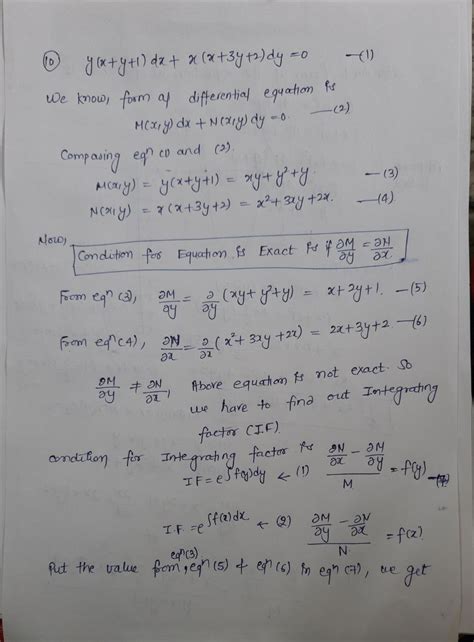 (10) y(x+y+1) dx + x(x+3y+2) dy = 0 —(1)
We know, form of differential equation is
M(x,y) dx + N(x,y) dy = 0. —(2)
Comparing eqn (1) and (2).
M(x,y) = y(x+y+1) = xy+y²+y. —(3)
N(x,y) = x(x+3y+2) = x²+3xy+2x. —(4)
Now,
Condition for Equation is Exact is if ∂M/∂y = ∂N/∂x.
From eqn (3), ∂M/∂y = ∂/∂y (xy+y²+y) = x+2y+1. —(5)
From eqn (4), ∂N/∂x = ∂/∂x (x²+3xy+2x) = 2x+3y+2. —(6)
∂M/∂y ≠ ∂N/∂x, Above equation is not exact. So
we have to find out Integrating
factor (I.F).
condition for Integrating factor is
IF = e^∫f(y)dy ← (1) (∂N/∂x − ∂M/∂y)/M = f(y) —(7)
I.F. = e^∫f(x)dx ← (2) (∂M/∂y − ∂N/∂x)/N = f(x).
Put the value from, eqn(3) eqn (5) & eqn (6) in eqn (7), we get